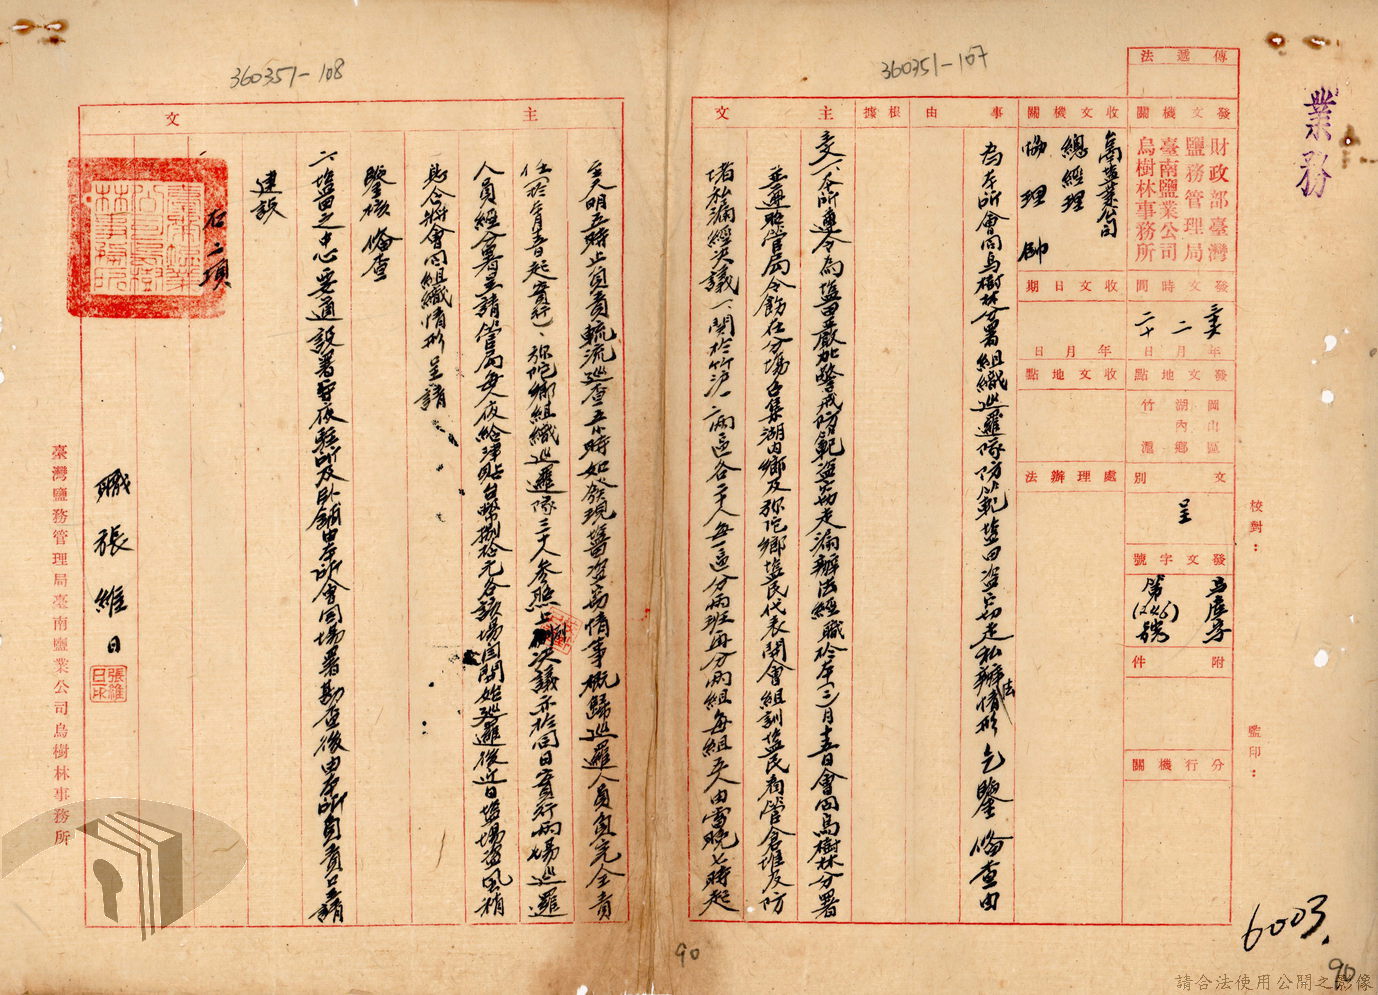 業務
傳遞法
發文機關
財政部臺灣
鹽務管理局
臺南鹽業公司
烏樹林事務所
發文時間
年月日
三十七
二
二十
發文地點
岡山區
湖內鄉
竹滬
文別
呈
發文字號
烏產字
第(246)號
附件
分行機關
校對：
監印：
收文機關
高塩業公司
總經理
協理
收文日期
年月日
收文地點
處理辦法
事由
為本所會同烏樹林分署組織巡邏隊防範塩田盜劫走私辦法情形乞鑒俻查由
根據
主文
一、本所遵令為塩田嚴加警戒防範盜劫走漏辦法經職於本(三)月十五日會同烏樹林分署
並遵照管局令飭在分場召集湖內鄉及弥陀鄉塩民代表開會組訓塩民看管倉堆及防
堵私漏經決議一、關於竹滬一二兩區各二十人每一區分兩班再分兩組每組五人由當晚七時起
至天明五時止負責輪流巡查五小時如發現盜劫情事概歸巡邏人員負完全責
任(於二月十五日起實行)、弥陀鄉組織巡邏隊三十人參照上開決議亦於同日實行兩場巡邏
人員經分署呈請管局每人每夜給津貼台幣捌拾元各該場同開始巡邏後近日塩場盜風稍
息合將會同組織情形呈請
鑒核俻查
二、塩田之中心要通設署晝夜駐所及卧舖由本所會同場署勘查後由本所負責呈請
建設
右二項
職張維日
張維日印
臺灣鹽務管理局臺南鹽業公司烏樹林事務所
360351-107
360351-108
6003.
90
90
請合法使用公開之影像